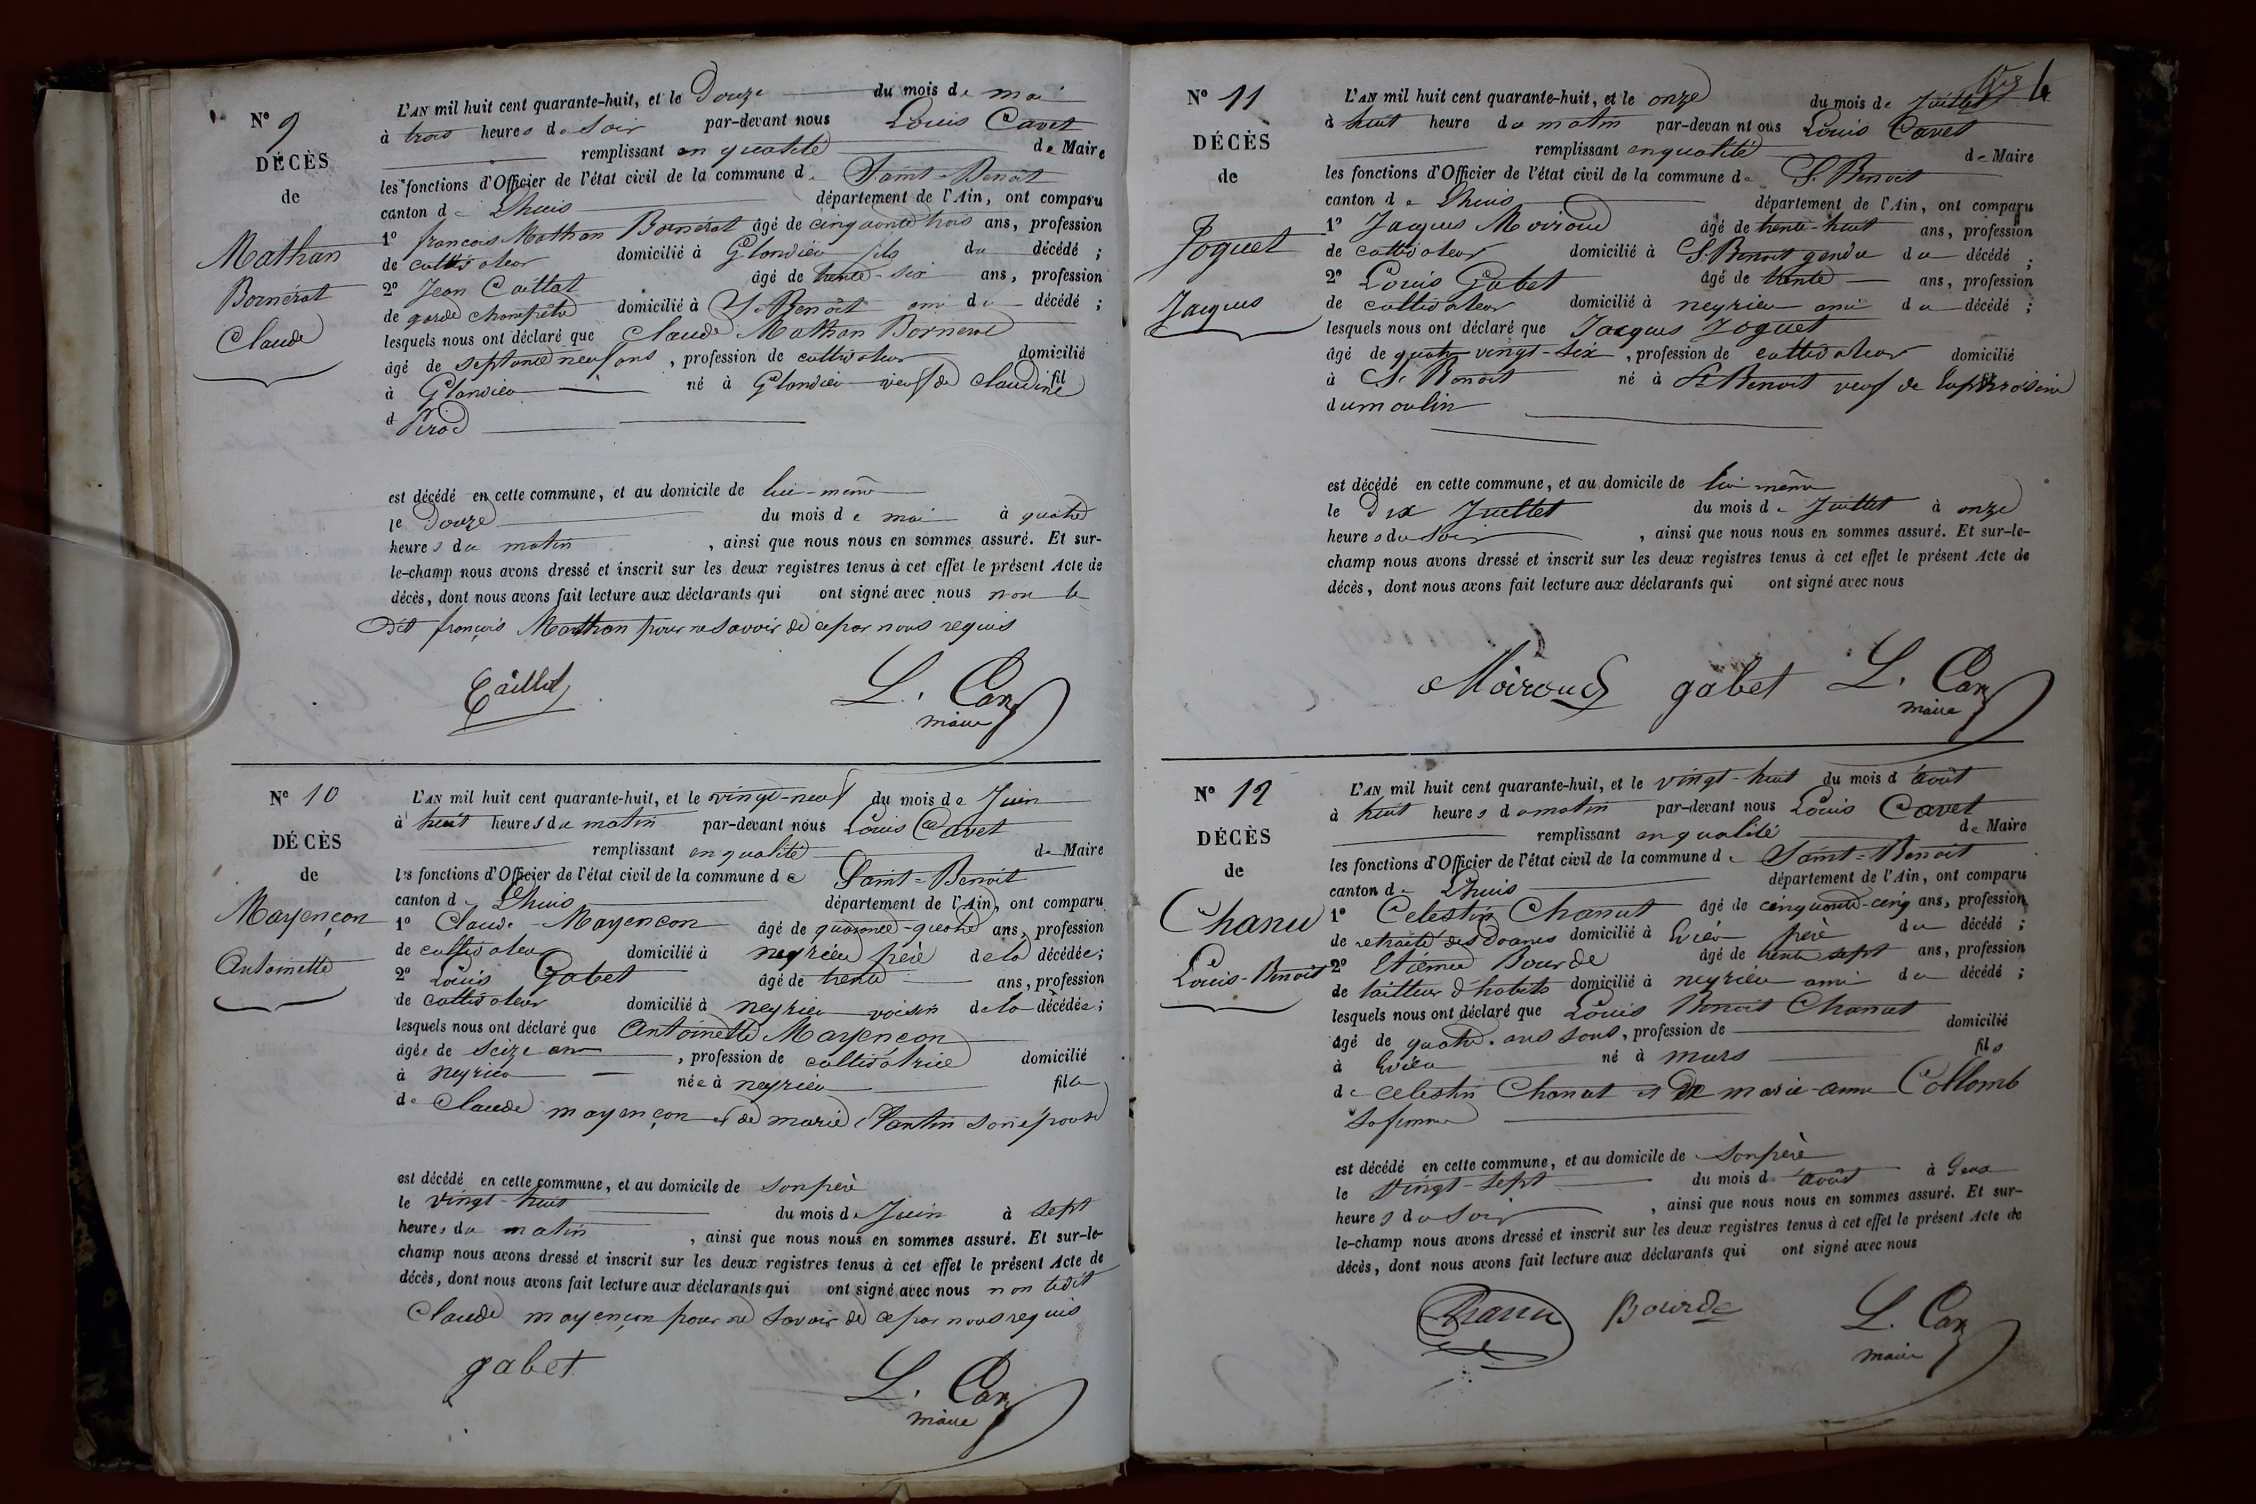 N° 9
DÉCÈS
de
Mathan
Bornérat
Claude
L'AN mil huit cent quarante-huit, et le Douze du mois de mai
à trois heures du Soir par-devant nous Louis Cavet
remplissant en qualité de Maire
les fonctions d'Officier de l'état civil de la commune de Saint-Benoit
canton de Lhuis département de l'Ain, ont comparu
1° francois Mathan Bornérat âgé de cinquante trois ans, profession
de cultivateur domicilié à Glandieu fils du décédé ;
2° Jean Caillat âgé de trente-six ans, profession
de garde champêtre domicilié à St Benoit ami du décédé ;
lesquels nous ont déclaré que Claude Mathan Bornerat
âgé de septante neuf ans, profession de cultivateur domicilié
à Glandieu né à Glandieu veuf de Claudine fil
d Pirod
est décédé en cette commune, et au domicile de lui-même
le Douze du mois de mai à quatre
heures du matin, ainsi que nous nous en sommes assuré. Et sur-
le-champ nous avons dressé et inscrit sur les deux registres tenus à cet effet le présent Acte de
décès, dont nous avons fait lecture aux déclarants qui ont signé avec nous non le
Dit françois Mathan pour ne savoir de ce par nous requis
Caillat L. Cavet
maire
N° 10
DÉCÈS
de
Mayençon
Antoinette
L'AN mil huit cent quarante-huit, et le vingt-neuf du mois de Juin
à huit heures du matin par-devant nous Louis Cavet
remplissant en qualité de Maire
les fonctions d'Officier de l'état civil de la commune de Saint-Benoit
canton de Lhuis département de l'Ain, ont comparu
1° Claude Mayencon âgé de quarante-quatre ans, profession
de cultivateur domicilié à neyrieu père de la décédée ;
2° Louis Gabet âgé de trente ans, profession
de cultivateur domicilié à neyrieu voisin de la décédée ;
lesquels nous ont déclaré que Antoinette Mayencon
âgée de seize ans, profession de cultivatrice domicilié
à neyrieu née à neyrieu fille
de Claude mayençon et de marie Vantin son épouse
est décédé en cette commune, et au domicile de son père
le vingt-huit du mois de Juin à sept
heures du matin, ainsi que nous nous en sommes assuré. Et sur-le-
champ nous avons dressé et inscrit sur les deux registres tenus à cet effet le présent Acte de
décès, dont nous avons fait lecture aux déclarants qui ont signé avec nous non ledit
Claude mayençon pour ne savoir de ce par nous requis
gabet L. Cavet
maire
4
N° 11
DÉCÈS
de
Joguet
Jacques
L'AN mil huit cent quarante-huit, et le onze du mois de Juillet
à huit heure du matin par-devan nt ous Louis Cavet
remplissant en qualité de Maire
les fonctions d'Officier de l'état civil de la commune de St Benoit
canton de Lhuis département de l'Ain, ont comparu
1° Jacques Moiroud âgé de trente-huit ans, profession
de cultivateur domicilié à St Benoit gendre du décédé ;
2° Louis Gabet âgé de trente ans, profession
de cultivateur domicilié à neyrieu ami du décédé ;
lesquels nous ont déclaré que Jacques Joguet
âgé de quatre vingt-six, profession de cultivateur domicilié
à St Benoit né à St Benoit veuf de Euphrosine
dumoulin
est décédé en cette commune, et au domicile de lui même
le Dix Juillet du mois de Juillet à onze
heures du soir, ainsi que nous nous en sommes assuré. Et sur-le-
champ nous avons dressé et inscrit sur les deux registres tenus à cet effet le présent Acte de
décès, dont nous avons fait lecture aux déclarants qui ont signé avec nous
Moiroud gabet L. Cavet
maire
N° 12
DÉCÈS
de
Chanu
Louis-Benoit
L'AN mil huit cent quarante-huit, et le vingt-huit du mois d'août
à huit heures du matin par-devant nous Louis Cavet
remplissant en qualité de Maire
les fonctions d'Officier de l'état civil de la commune de Saint-Benoit
canton de Lhuis département de l'Ain, ont comparu
1° Celestin Chanut âgé de cinquante-cinq ans, profession
de retraité des Doanes domicilié à Evieu père du décédé ;
2° Etienne Bourde âgé de trente sept ans, profession
de tailleur d'habits domicilié à neyrieu ami du décédé ;
lesquels nous ont déclaré que Louis Benoit Chanut
âgé de quatre ans, profession de domicilié
à Evieu né à murs fils
de Celestin Chanut et de marie-anne Collomb
sa femme
est décédé en cette commune, et au domicile de son père
le vingt-sept du mois d'août à deux
heures du soir, ainsi que nous nous en sommes assuré. Et sur-
le-champ nous avons dressé et inscrit sur les deux registres tenus à cet effet le présent Acte de
décès, dont nous avons fait lecture aux déclarants qui ont signé avec nous
Chanu Bourde L. Cavet
maire